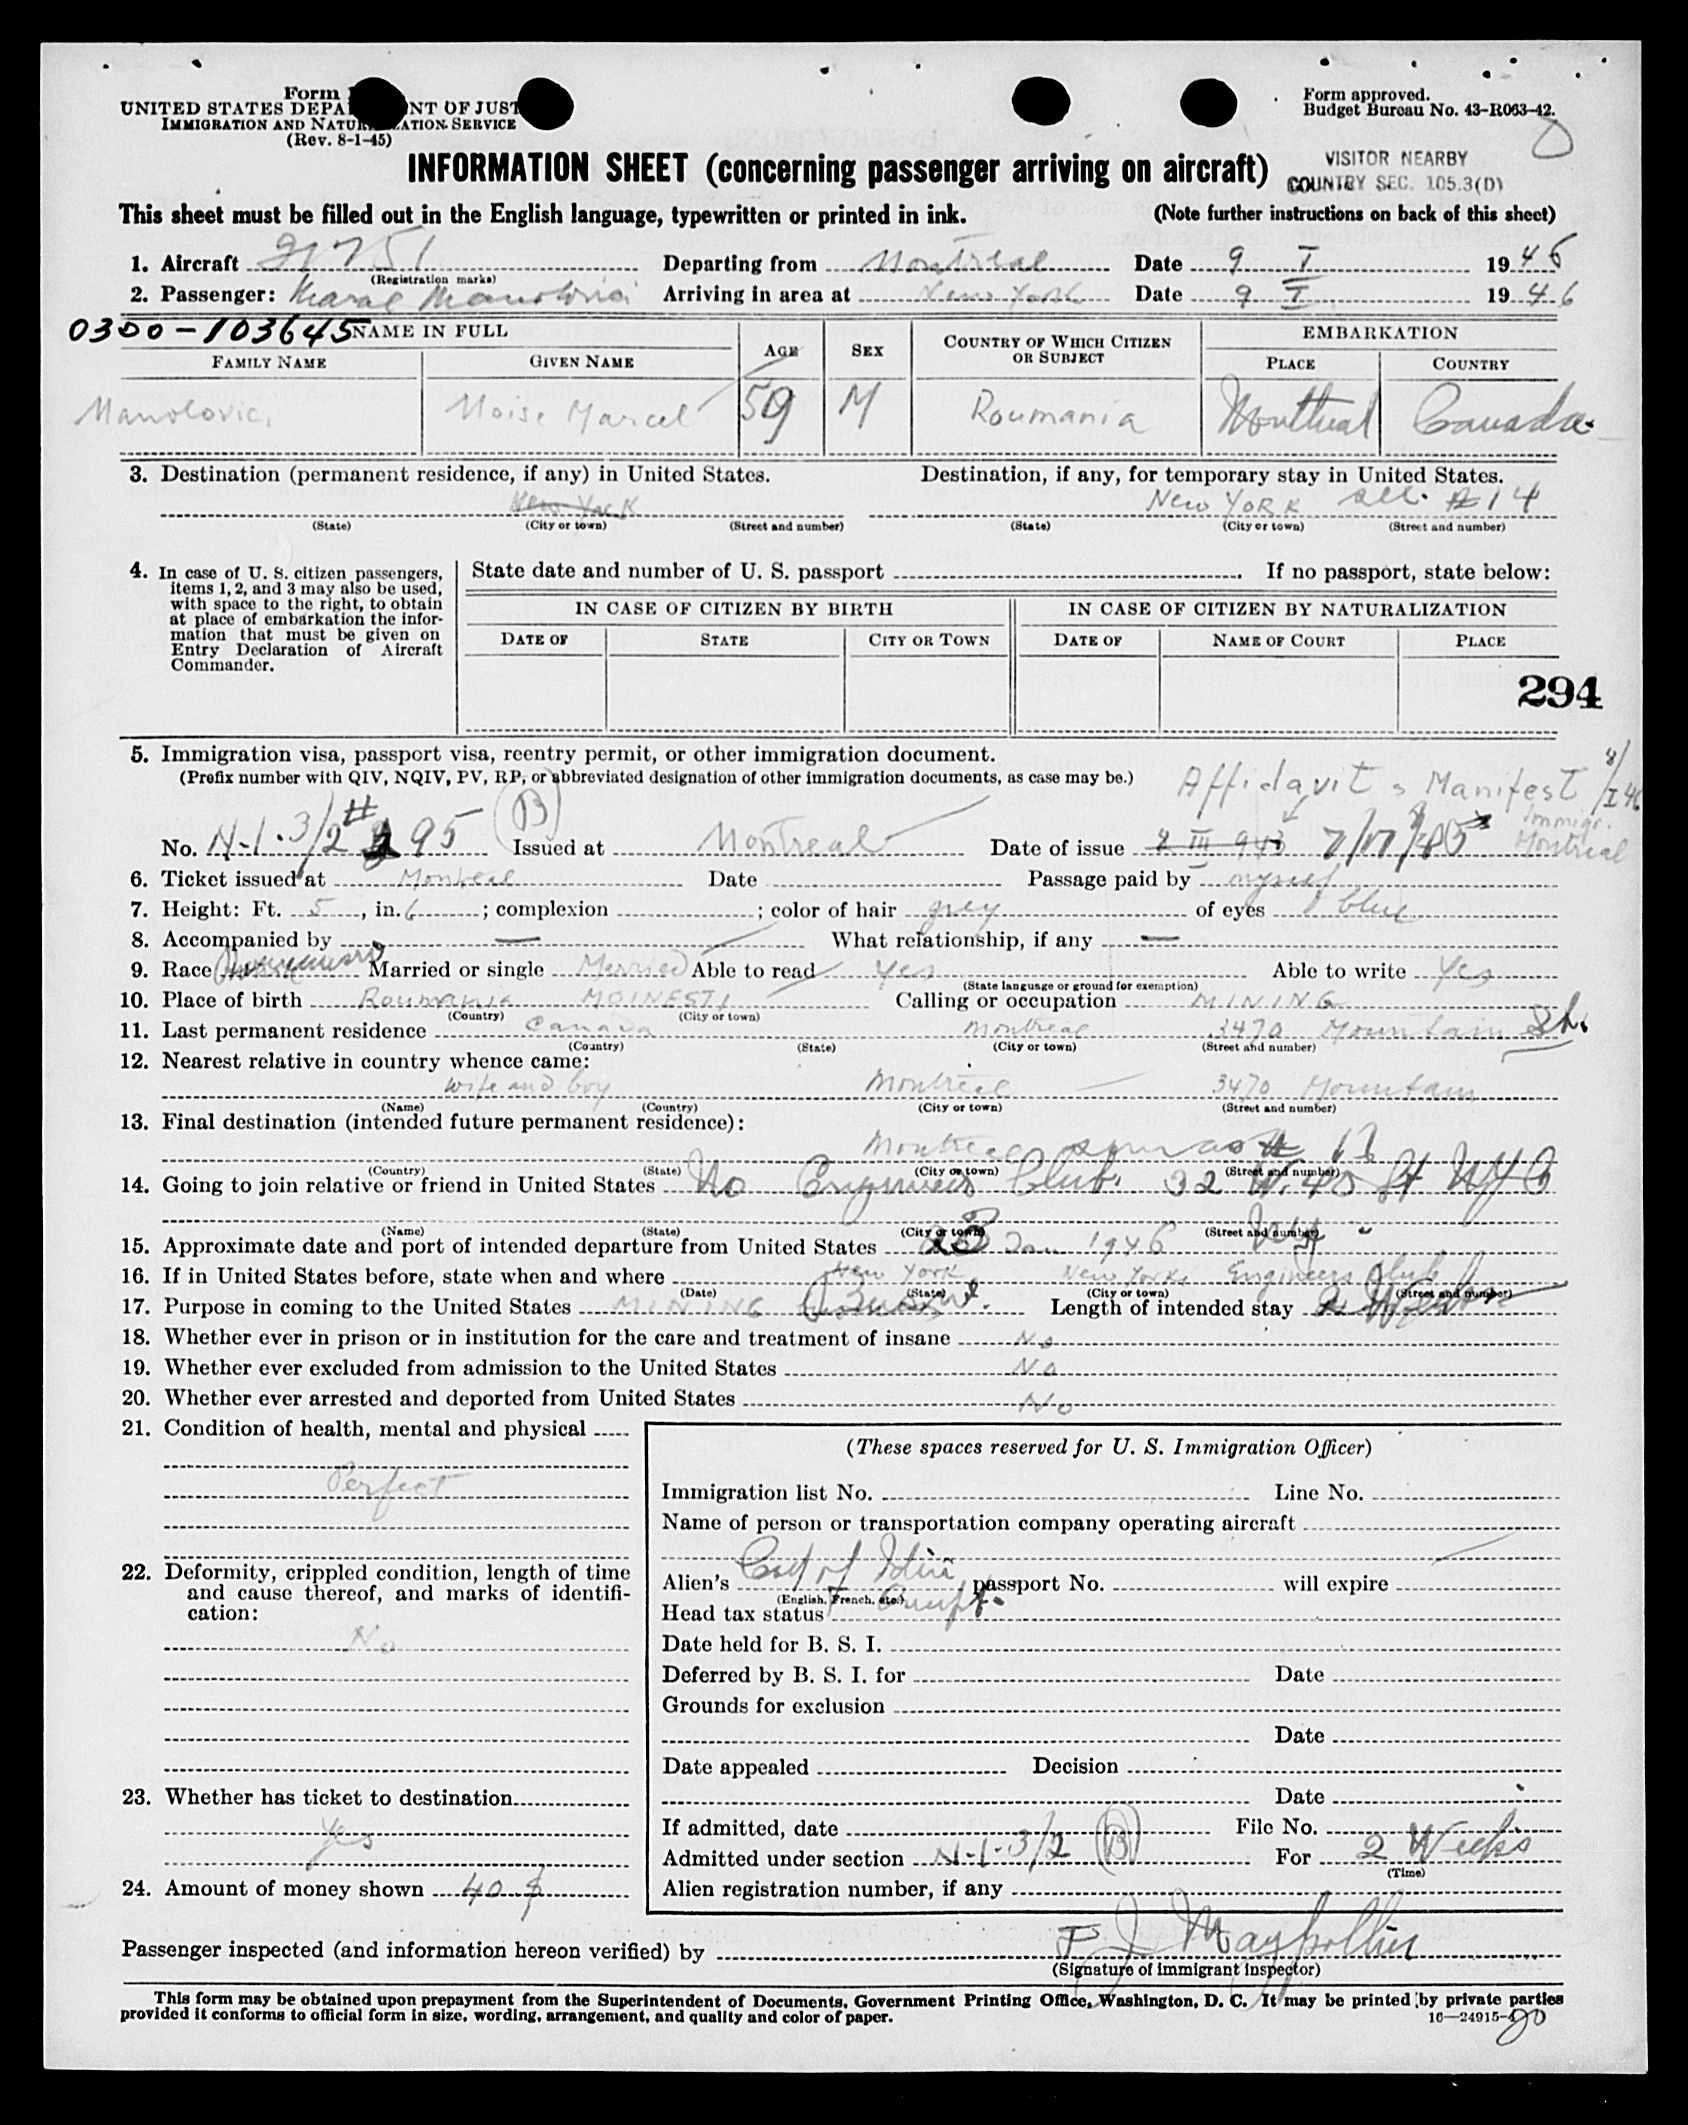 Form
UNITED STATES DEPA NT OF JUST
IMMIGRATION AND NATU ATION SERVICE
(Rev. 8-1-45)
Form approved.
Budget Bureau No. 43-R063-42.
INFORMATION SHEET (concerning passenger arriving on aircraft)
VISITOR NEARBY
COUNTRY SEC. 105.3(D)
This sheet must be filled out in the English language, typewritten or printed in ink. (Note further instructions on back of this sheet)
1. Aircraft (Registration marks) Departing from Montreal Date 9 I 1946
2. Passenger: Arriving in area at New York Date 9 I 1946
0300-103645 NAME IN FULL
FAMILY NAME GIVEN NAME AGE SEX COUNTRY OF WHICH CITIZEN OR SUBJECT EMBARKATION PLACE COUNTRY
Manolovici Moise Marcel 59 M Roumania Montreal Canada
3. Destination (permanent residence, if any) in United States. Destination, if any, for temporary stay in United States.
New York New York see #14
(State) (City or town) (Street and number) (State) (City or town) (Street and number)
4. In case of U. S. citizen passengers, items 1, 2, and 3 may also be used, with space to the right, to obtain at place of embarkation the information that must be given on Entry Declaration of Aircraft Commander.
State date and number of U. S. passport . If no passport, state below:
IN CASE OF CITIZEN BY BIRTH IN CASE OF CITIZEN BY NATURALIZATION
DATE OF STATE CITY OR TOWN DATE OF NAME OF COURT PLACE
294
5. Immigration visa, passport visa, reentry permit, or other immigration document.
(Prefix number with QIV, NQIV, PV, RP, or abbreviated designation of other immigration documents, as case may be.)
Affidavit & Manifest
Immigr. Montreal
No. N-1-3/2 (B) Issued at Montreal Date of issue
6. Ticket issued at Montreal Date Passage paid by myself
7. Height: Ft. 5, in. 6; complexion ; color of hair grey of eyes blue
8. Accompanied by — What relationship, if any —
9. Race Married or single Married Able to read yes Able to write Yes
(State language or ground for exemption)
10. Place of birth Roumania MOINESTI Calling or occupation MINING
(Country) (City or town)
11. Last permanent residence Canada Montreal 3470 Mountain St.
(Country) (State) (City or town) (Street and number)
12. Nearest relative in country whence came:
wife and boy Montreal 3470 Mountain
(Name) (Country) (City or town) (Street and number)
13. Final destination (intended future permanent residence):
Montreal same as # 11
(Country) (State) (City or town) (Street and number)
14. Going to join relative or friend in United States No Engineers Club. 32 W. 40 St NYC
(Name) (State) (City or town) (Street and number)
15. Approximate date and port of intended departure from United States 23 Jan 1946 NY
16. If in United States before, state when and where New York New York Engineers Club
(Date) (State) (City or town) (Street and number)
17. Purpose in coming to the United States MINING Business. Length of intended stay 2 Weeks
18. Whether ever in prison or in institution for the care and treatment of insane No
19. Whether ever excluded from admission to the United States No
20. Whether ever arrested and deported from United States No
21. Condition of health, mental and physical
Perfect
22. Deformity, crippled condition, length of time
and cause thereof, and marks of identifi-
cation:
No
23. Whether has ticket to destination
Yes
24. Amount of money shown 40 $
(These spaces reserved for U. S. Immigration Officer)
Immigration list No. Line No.
Name of person or transportation company operating aircraft
Alien's passport No. will expire
(English, French, etc.)
Head tax status
Date held for B. S. I.
Deferred by B. S. I. for Date
Grounds for exclusion
Date
Date appealed Decision
Date
If admitted, date File No.
Admitted under section N-1-3/2 (B) For 2 Weeks
(Time)
Alien registration number, if any
Passenger inspected (and information hereon verified) by
(Signature of immigrant inspector)
This form may be obtained upon prepayment from the Superintendent of Documents, Government Printing Office, Washington, D. C. It may be printed by private parties
provided it conforms to official form in size, wording, arrangement, and quality and color of paper.
16—24915-1